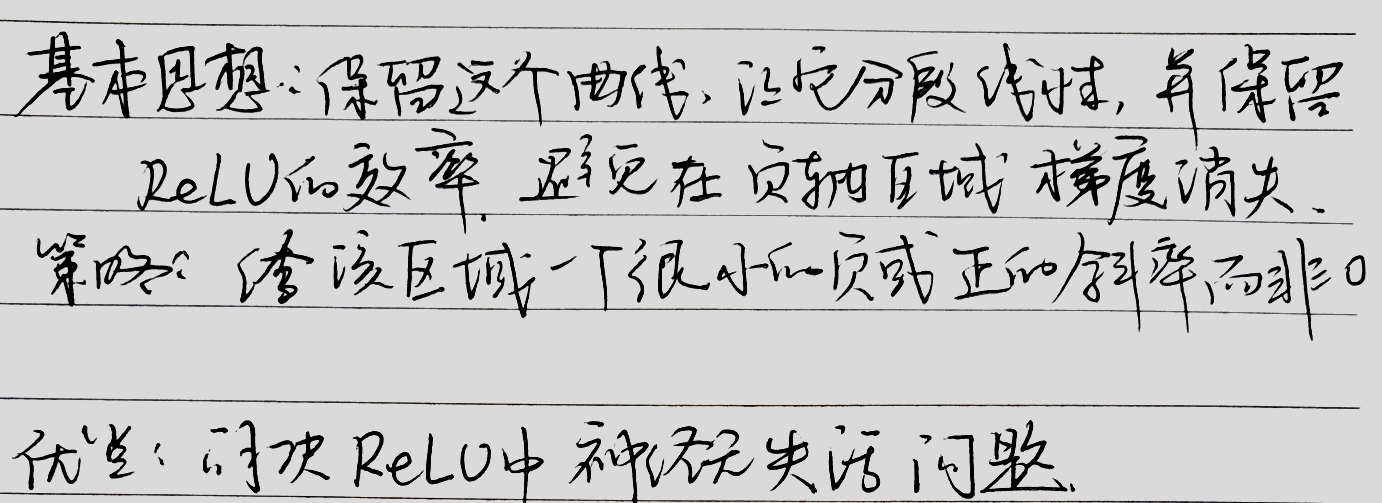 基本思想：保留这个曲线、让它分段线性，并保留
ReLU的效率，避免在负轴区域梯度消失、
策略：给该区域一个很小的负或正的斜率而非0
优点：解决ReLU中神经元失活问题.